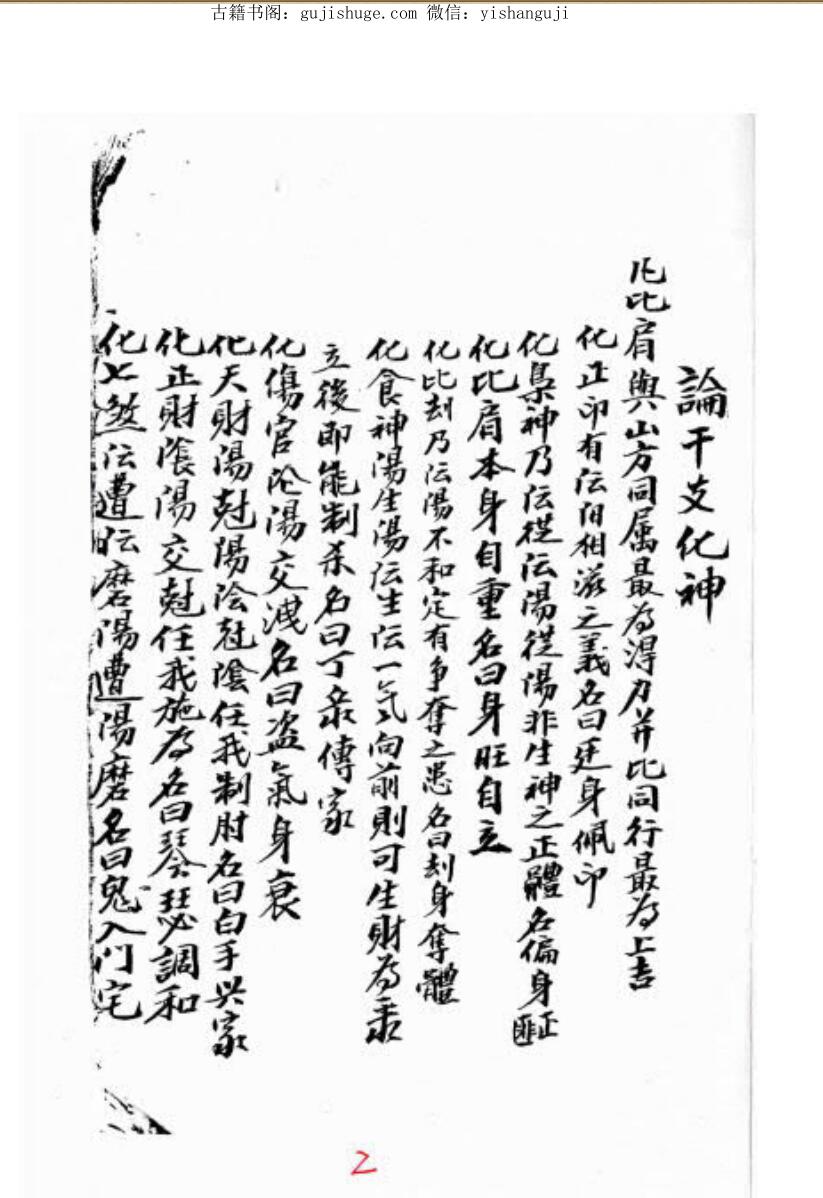 古籍书阁：gujishuge.com 微信：yishanguji
論干支化神
凡比肩與山方同属最为淂力并比同行最为上吉
化正印有伝阳相滋之義名曰廷身佩印
化梟神乃伝従伝湯従陽非生神之正體名偏身匪正
化比肩本身自重名曰身旺自立
化比刦乃伝陽不和定有争奪之患名曰刦身奪體
化食神湯生湯伝生伝一气向前則可生財为彔
立後即能制杀名曰丁彔傳家
化傷官沦湯交洩名曰盗氣身衰
化天財湯尅陽陰尅陰任我制肘名曰白手兴家
化正財陰陽交尅任我施为名曰琴瑟調和
化七煞伝遭伝磨湯遭湯磨名曰鬼入门宅
2